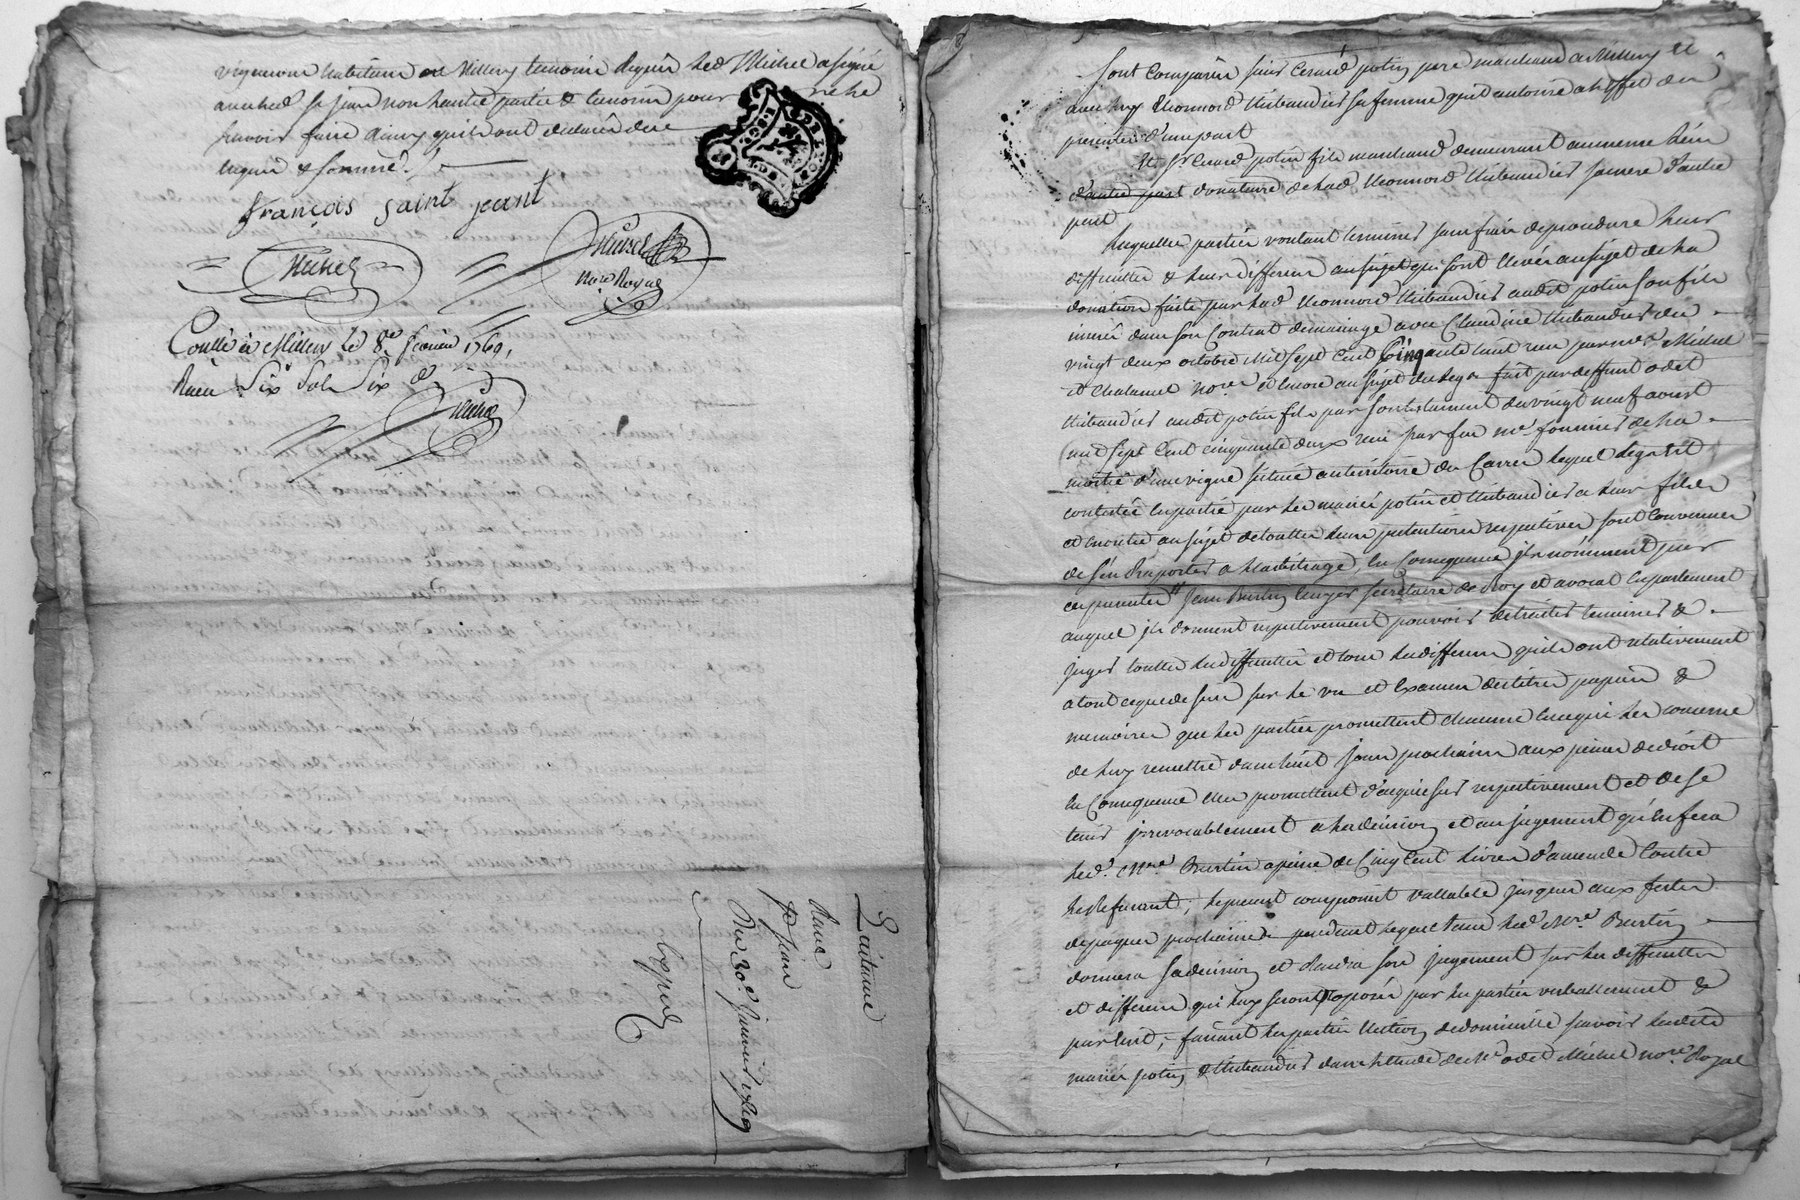 vigneron habitant de Millery temoin requis led Michel a signé
avec led st jean non hautre partie & temoin pour ne le
scavoir faire ainsy qu'ils ont declaré de ce
requis & sommé
françois saint jeant
Michel
Michel
Nore Royal
Conllé à Millery le 8e fevrier 1769,
Receu six sols six d
Michel
Quittance
pour
st jean
Du 30e janvier 1769
Expied
Sont comparus sieur Cezard potin pere marchand a Millery et
avec luy Leonnord thibaudier sa femme quil autorise a l'effet des
presentes d'une part
Et sr Cezard potin fils marchand demeurant au meme lieu
d'autre part donataire de lad Leonnord thibaudier sa mere d'autre
part
lesquelles parties voulant terminer sans frais de procedure leurs
difficultés & leurs differens au sujet qui sont levés au sujet de la
donation faite par lad Leonnord thibaudier audit potin son fils
inseré dans son Contrat de mariage avec Claudine thibaudier du
vingt deux octobre mil sept cent Cinquante huit reçu par me Michel
et Chalamel nore et encore au sujet du legs fait par deffunt odet
thibaudier audit potin fils par son testament du vingt neuf aoust
mil sept cent cinquante deux reçu par feu me fournier de la
moitié d'une vigne située au territoire du Carrer lequel legs est
contesté en partie par les mariés potin et thibaudier a leur fils
et encore au sujet de toutes leurs pretentions respectives sont convenues
de s'en rapporter a l'arbitrage, en consequence ils nomment par
ces presentes sr jean Burtin ecuyer secretaire du Roy et avocat en parlement
auquel ils donnent respectivement pouvoir de traiter terminer &
juger toutes les difficultés et tous les differens qu'ils ont relativement
a tout ce que dessus sur le vu et examen des titres papiers &
memoires que les parties promettent chacune en ce qui les concerne
de luy remettre dans huit jours prochains aux peines de droit
en consequence elles promettent d'acquiescer respectivement et de se
tenir irrevocablement a la decision et au jugement qu'en fera
led. Mre Burtin a peine de Cinq Cent livres d'amende contre
le refusant, le present compromit vallable jusques aux festes
de paques prochaines pendant lequel tems led Mre Burtin
donnera sa decision et rendra son jugement sur les difficultés
et differens qui luy seront exposés par les parties verballement &
par écrit, faisant les parties election de domicille scavoir lesdits
mariés potin & thibaudier dans l'etude de Me odet Michel nore Royal